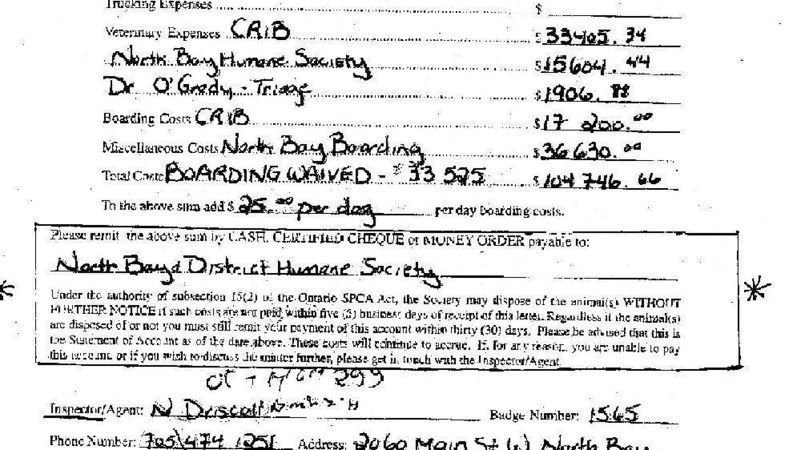 Trucking Expenses $
Veterinary Expenses CRIB $33405.34
North Bay Humane Society $15604.44
Dr O'Grady - Triage $1906.88
Boarding Costs CRIB $17 200.00
Miscellaneous Costs North Bay Boarding $36 630.00
Total Costs BOARDING WAIVED - $33 525 $104 746.66
To the above sum add $ 25.00 per day per day boarding costs.
Please remit the above sum by CASH, CERTIFIED CHEQUE or MONEY ORDER payable to:
North Bay & District Humane Society
Under the authority of subsection 15(2) of the Ontario SPCA Act, the Society may dispose of the animal(s) WITHOUT
FURTHER NOTICE if such costs are not paid within five (5) business days of receipt of this letter. Regardless if the animal(s)
are disposed of or not you must still remit your payment of this account within thirty (30) days. Please be advised that this is
the Statement of Account as of the date above. These costs will continue to accrue. If, for any reason, you are unable to pay
this account or if you wish to discuss the matter further, please get in touch with the Inspector/Agent.
299
Inspector/Agent: N Driscoll Badge Number: 1565
Phone Number: 705 474 1251 Address: 2060 Main St W North Bay